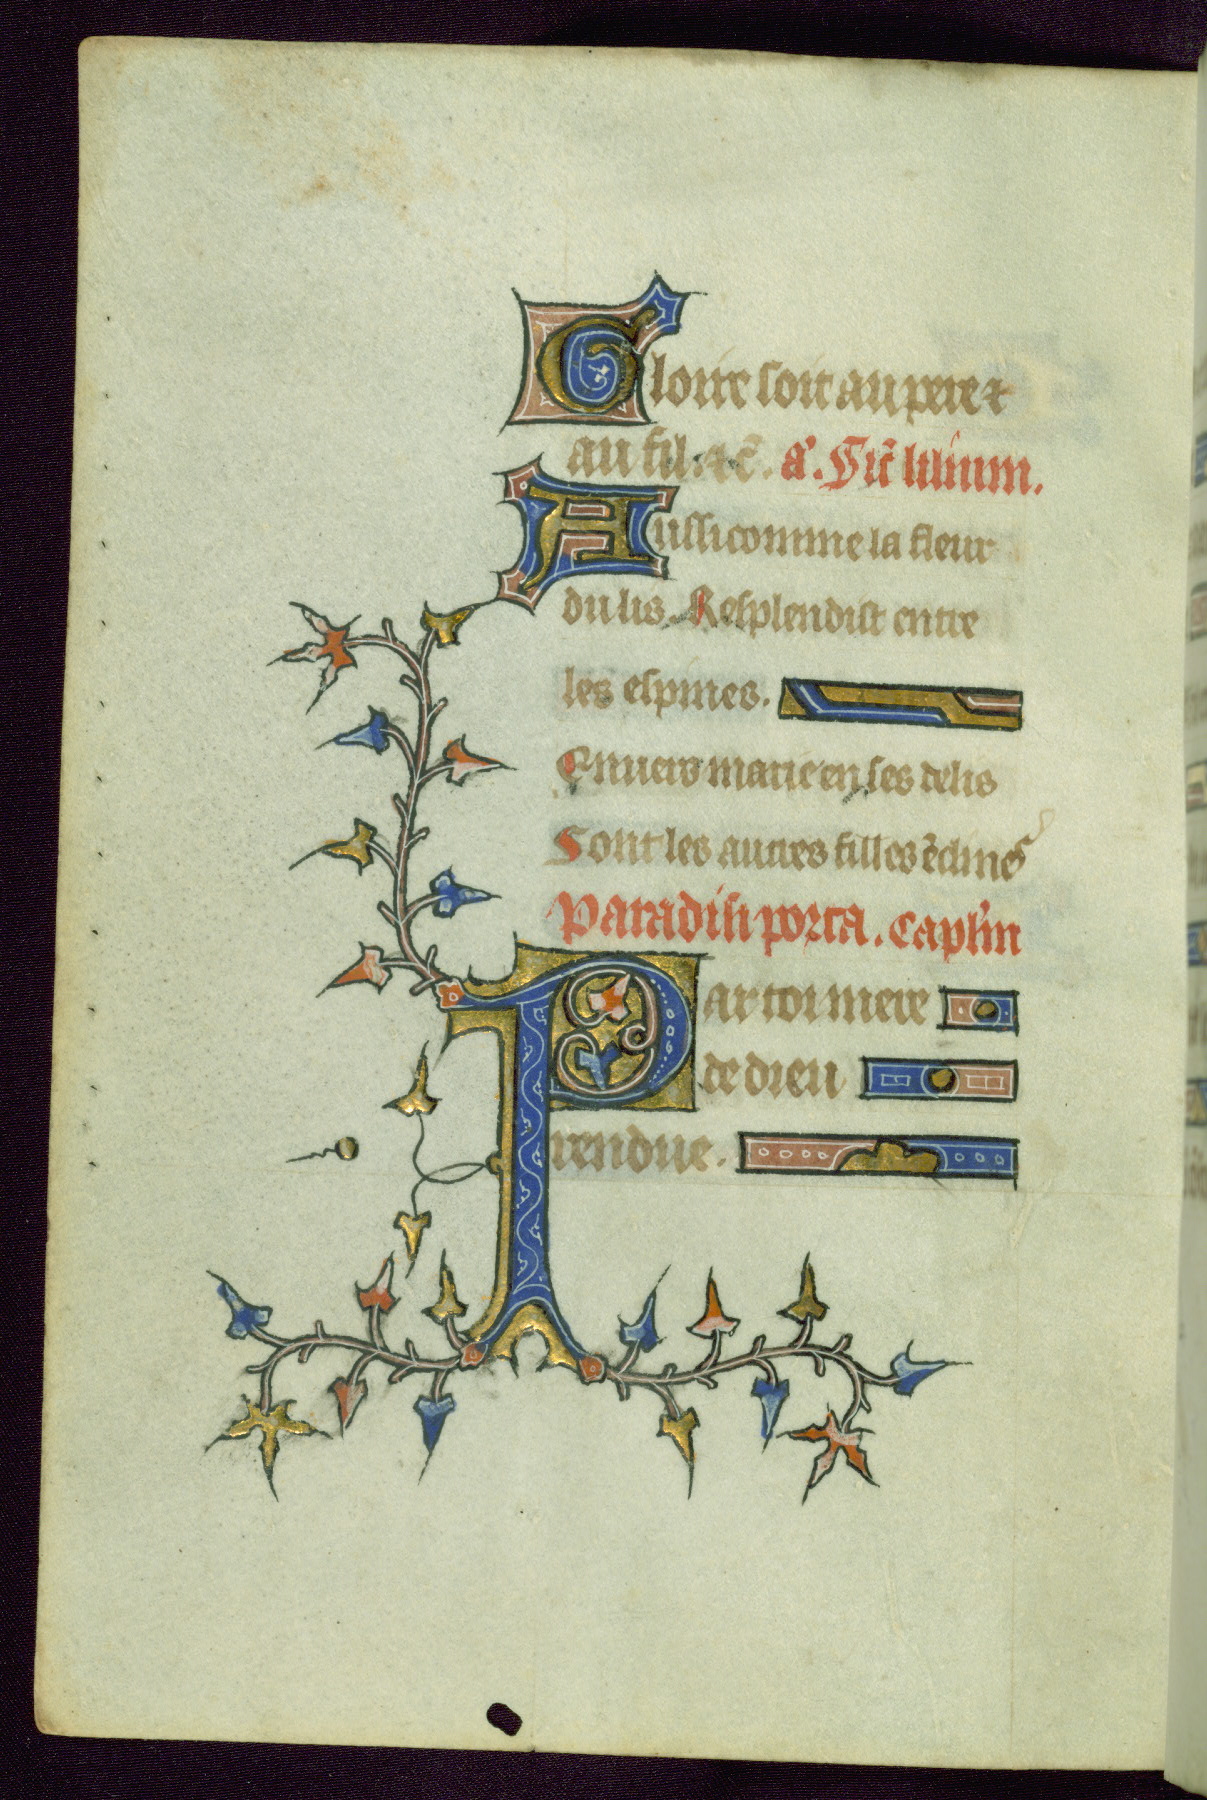 Gloire soit au pere ⁊
au fil. ⁊ c̄. a'. Sic̄ lilium.
Aussi comme la fleur
du lis. Resplendist entre
les espines.
Enuers marie en ses delis
Sont les autres filles ēclines
Paradisi porta. Capl'm
Par toi mere
de dieu
rendue.